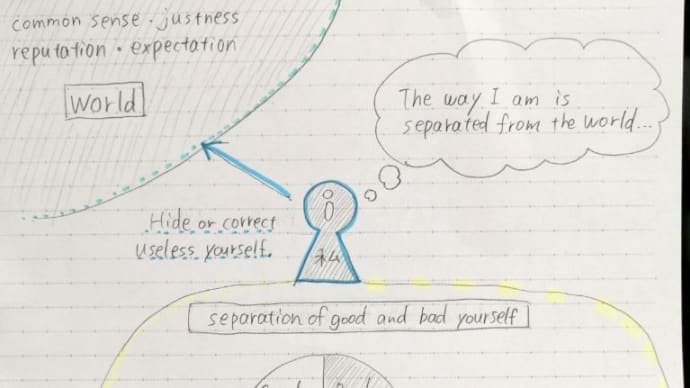 common sense・justness
reputation・expectation
World
The way I am is
separated from the world...
Hide or correct
useless yourself.
私
separation of good and bad yourself